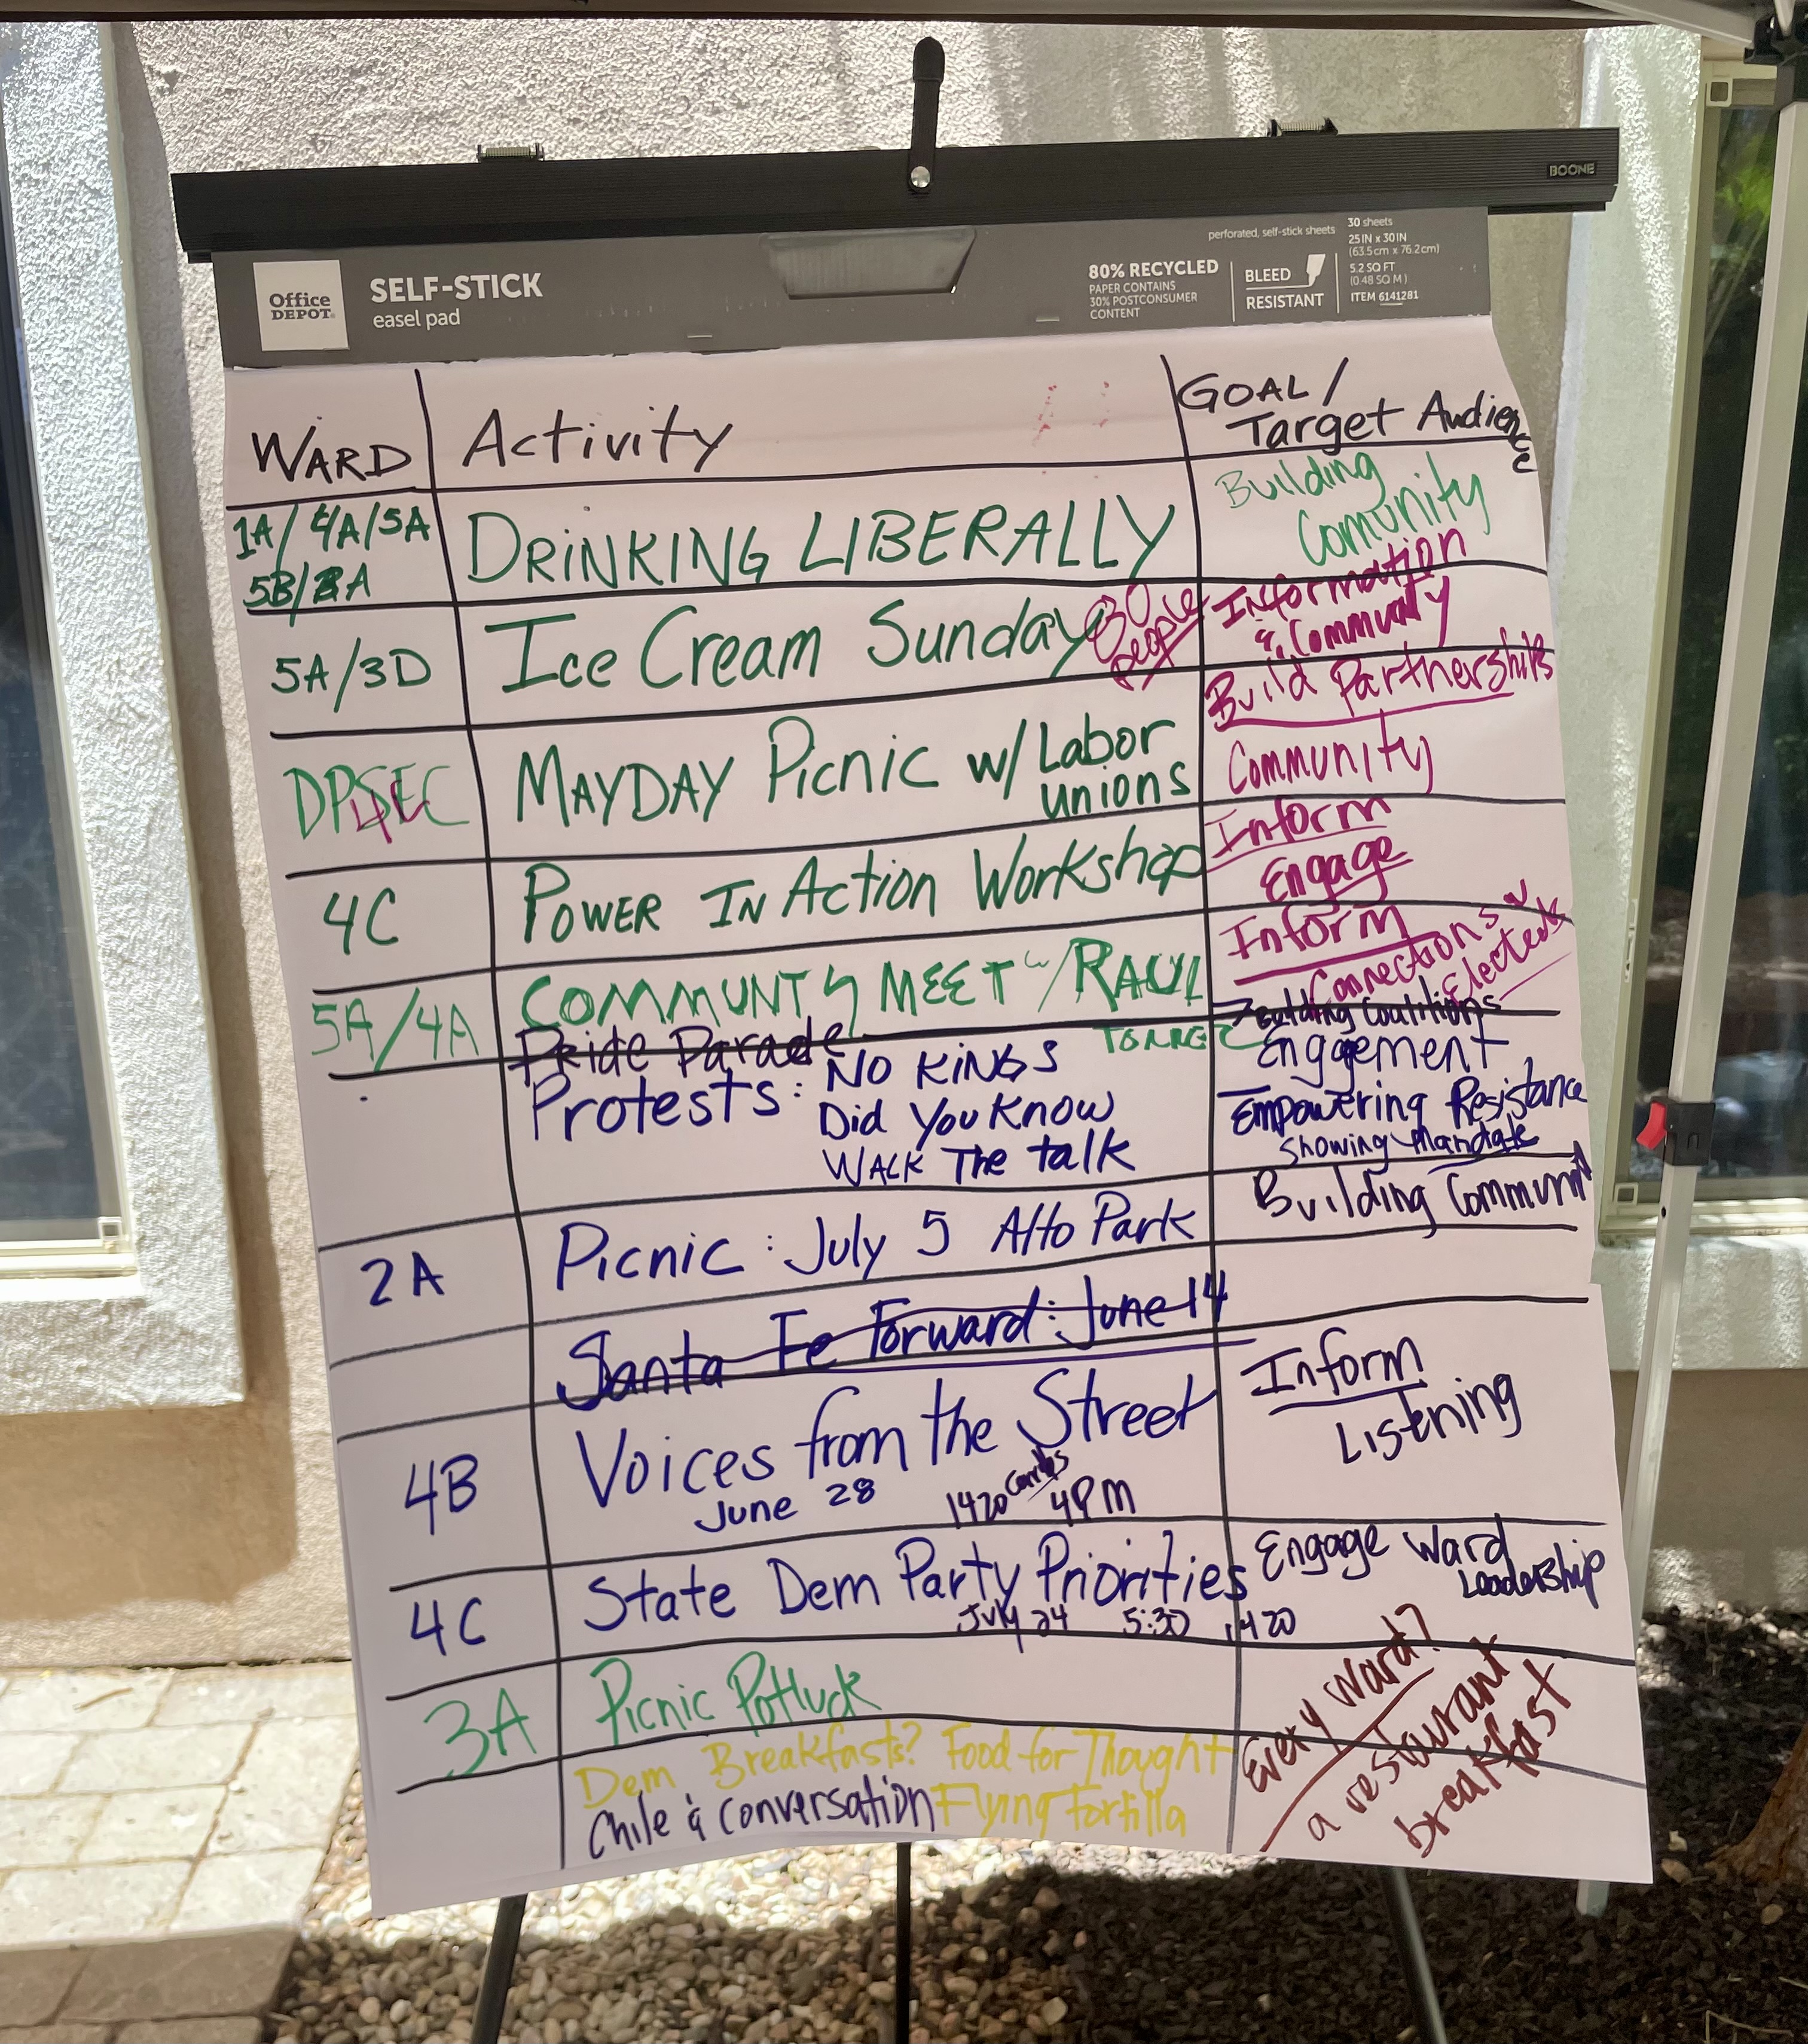 BOONE
Office
DEPOT
SELF-STICK
easel pad
80% RECYCLED
PAPER CONTAINS
30% POSTCONSUMER
CONTENT
perforated, self-stick sheets
BLEED
RESISTANT
30 sheets
25 IN x 30 IN
(63.5 cm x 76.2 cm)
5.2 SQ FT
(0.48 SQ M)
ITEM 6141281
WARD
Activity
GOAL /
Target Audience
1A/4A/5A
5B/2A
DRINKING LIBERALLY
Building
Comunity
5A/3D
Ice Cream Sunday
30
people
Information
& Community
MAYDAY Picnic w/ Labor
unions
Build Partnerships
Community
4C
POWER IN Action Workshop
Inform
Engage
5A/4A
COMMUNTY MEET w/RAUL
TORREZ
Inform
Connections w
Electeds
Pride Parade
Protests: NO KINGS
Did You Know
WALK The talk
Building Coalitions
Engagement
Empowering Resistance
Showing Mandate
2A
Picnic: July 5 Alto Park
Building Community
Santa Fe Forward: June 14
4B
Voices from the Street
June 28 1420 Cerrillos 4PM
Inform
Listening
4C
State Dem Party Priorities
July 24 5:30 1420
Engage Ward
Leadership
3A
Picnic Potluck
Dem Breakfasts? Food for Thought
Chile & Conversation Flying Tortilla
Every Ward?
a restaurant
breakfast